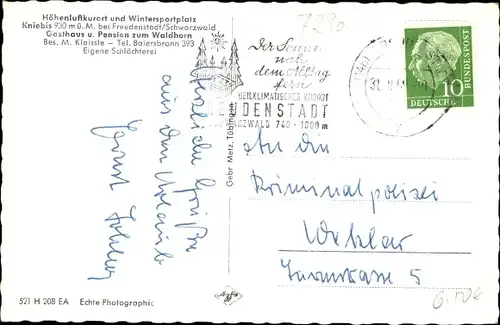 Höhenluftkurort und Wintersportplatz
Kniebis 930 m ü. M. bei Freudenstadt/Schwarzwald
Gasthaus u. Pension zum Waldhorn
Bes. M. Klaissle - Tel. Baiersbronn 393
Eigene Schlächterei
7290
Der Sonne
nah
dem Alltag
fern
HEILKLIMATISCHER KURORT
DENSTADT
WALD 740 - 1000 m
31.
10
DEUTSCHE
BUNDESPOST
Herzliche Grüße
aus dem Urlaub
Ernst
Gebr. Metz, Tübingen
An die
Kriminalpolizei
Wetzlar
5
521 H 208 EA Echte Photographie
Agfa